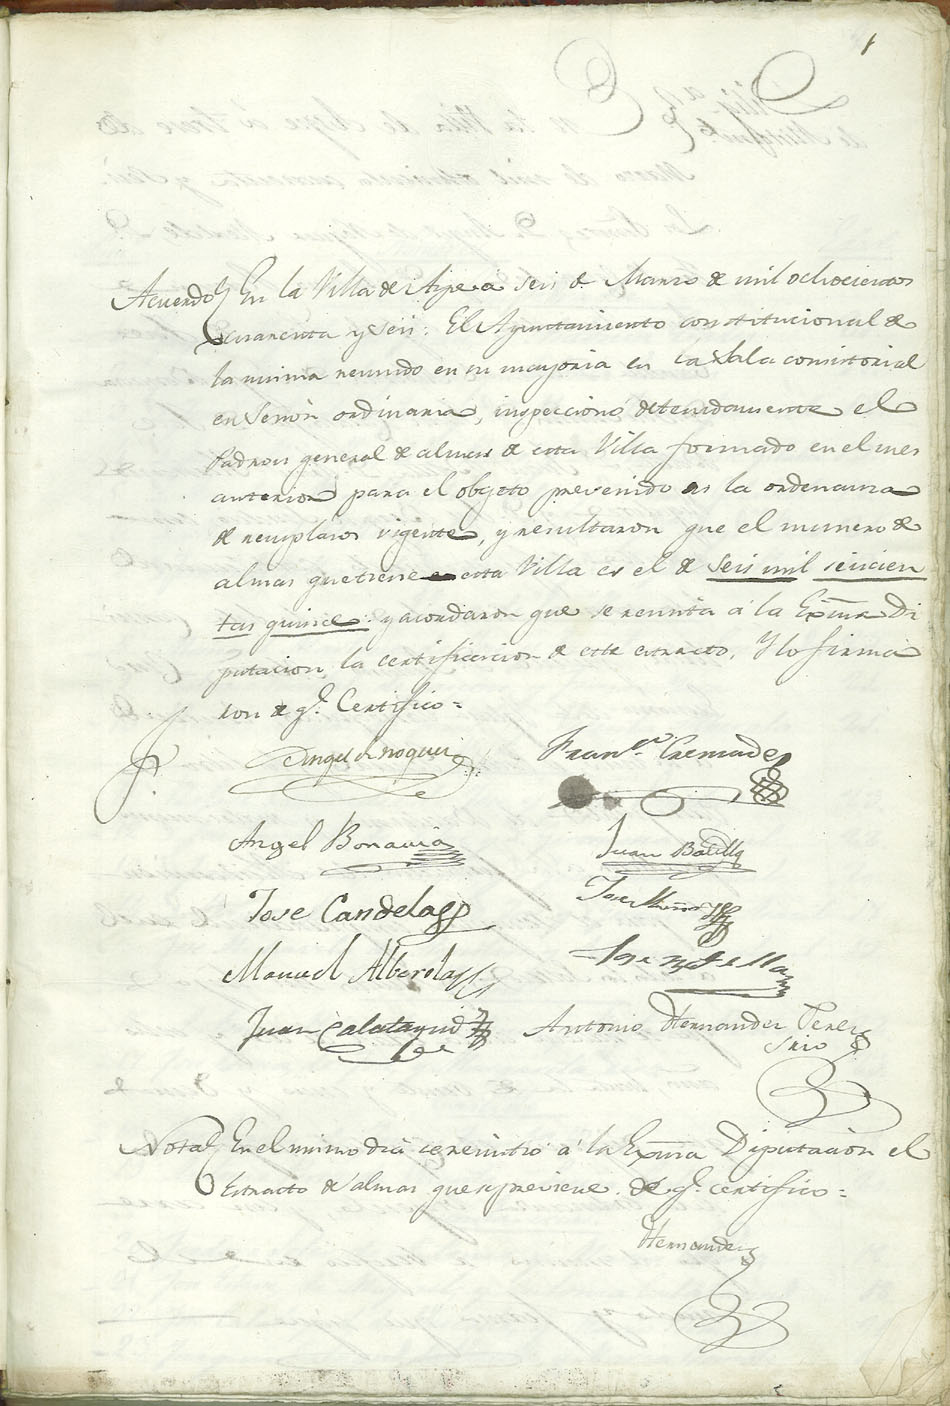 1
Acuerdo En la Villa de Aspe a seis de Marzo de mil ochocientos
cuarenta y seis: El Ayuntamiento constitucional de
la misma reunido en su mayoria en la Sala consistorial
en Sesion ordinaria, inspeccionó detenidamente el
Padron general de almas de esta Villa formado en el mes
anterior para el objeto prevenido en la ordenanza
de remplazos vigente, y resultaron que el numero de
almas que tiene esta Villa es el de seis mil seiscien
tas quince: y acordaron que se remita á la Exma Di
putacion la certificacion de este extracto, Y lo firma
ron de q.e Certifico=
Fran.co Cremades
Angel Bonavia
Juan Botella
Jose Candela
Jose
Manuel Alberola
Jose Botella
Juan Calatayud
Antonio Hernandez Perez
Srio
Nota En el mismo dia se remitió á la Exma Diputacion el
Extracto de almas que se previene. de q.e certifico=
Hernandez